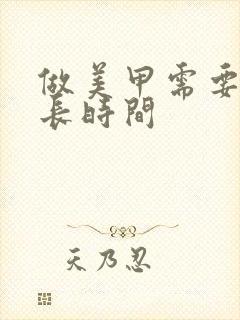 做美甲需要
長時間
天乃忍